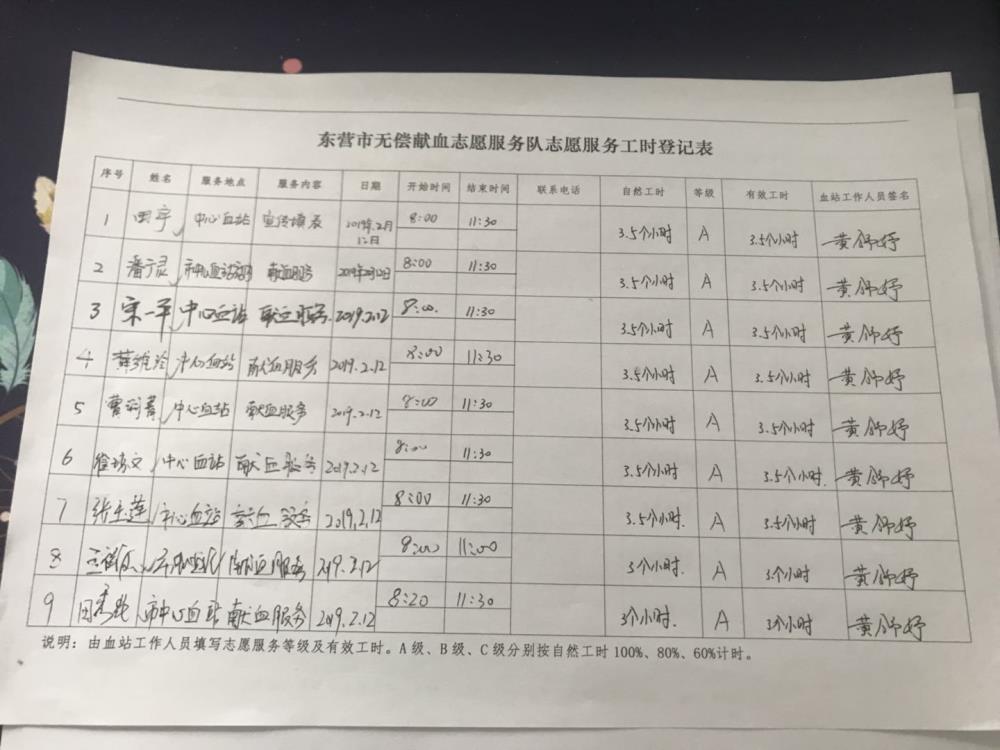 东营市无偿献血志愿服务队志愿服务工时登记表
序号 姓名 服务地点 服务内容 日期 开始时间 结束时间 联系电话 自然工时 等级 有效工时 血站工作人员签名
1 田宇 中心血站 宣传填表 2019年2月12日 8:00 11:30 3.5个小时 A 3.5个小时 黄
2 献血服务 2019年2月12日 8:00 11:30 3.5个小时 A 3.5个小时 黄
3 宋一平 中心血站 献血服务 2019.2.12 8:00 11:30 3.5个小时 A 3.5个小时 黄
4 中心血站 献血服务 2019.2.12 8:00 11:30 3.5个小时 A 3.5个小时 黄
5 曹 中心血站 献血服务 2019.2.12 8:00 11:30 3.5个小时 A 3.5个小时 黄
6 中心血站 献血服务 2019.2.12 8:00 11:30 3.5个小时 A 3.5个小时. 黄
7 张玉莲 市中心血站 献血服务 2019.2.12 8:00 11:30 3.5个小时. A 3.5个小时 黄
8 献血服务 2019.2.12 8:00 11:00 3个小时. A 3个小时 黄
9 田秀 市中心血站 献血服务 2019.2.12 8:20 11:30 3个小时. A 3个小时 黄
说明：由血站工作人员填写志愿服务等级及有效工时。A级、B级、C级分别按自然工时100%、80%、60%计时。